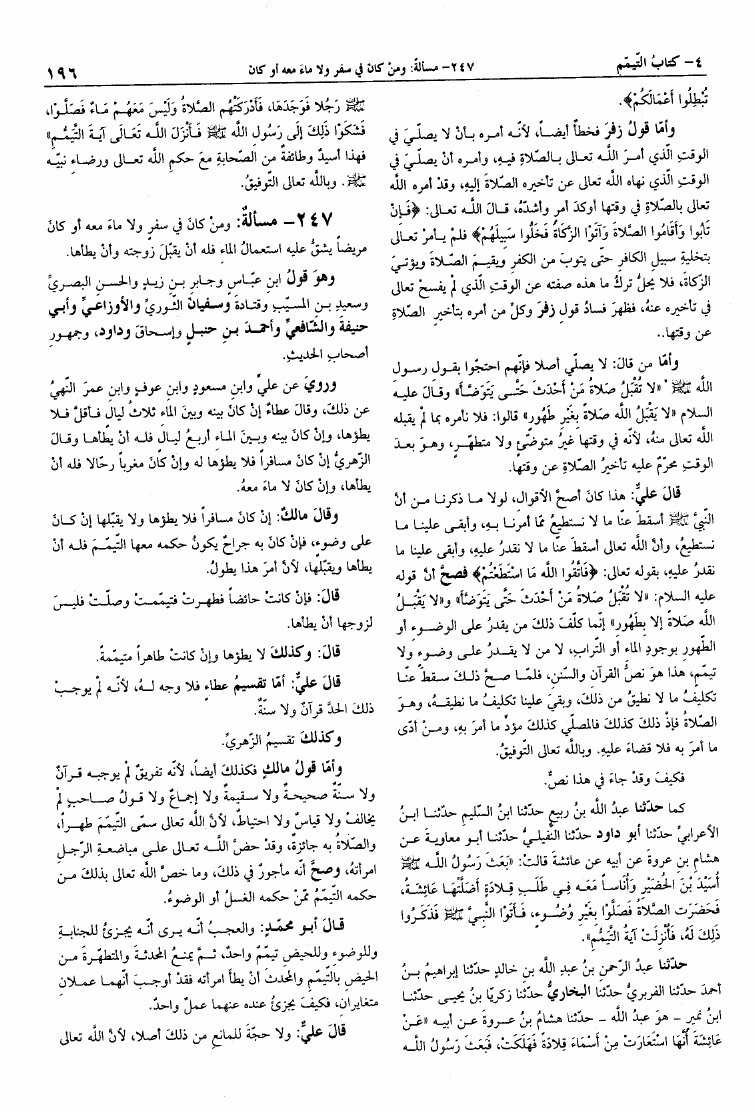 ٤- كتابُ التّيمّم
٢٤٧- مسألة: ومنْ كان في سفرٍ ولا ماءَ معه أو كان
١٩٦
تُبْطِلُوا أَعْمَالَكُمْ﴾.
وأمّا قولُ زفرَ فخطأٌ أيضاً، لأنّه أمره بأنْ لا يصلّيَ في
الوقتِ الّذي أمرَ اللّه تعالى بالصّلاةِ فيهِ، وأمره أنْ يصلّيَ في
الوقتِ الّذي نهاه اللّه تعالى عن تأخيره الصّلاةَ إليهِ، وقدْ أمره اللّه
تعالى بالصّلاةِ في وقتها أوكدَ أمرٍ وأشدّهُ، قالَ اللّه تعالى: ﴿فَإِنْ
تَابُوا وَأَقَامُوا الصَّلاةَ وَآتَوُا الزَّكَاةَ فَخَلُّوا سَبِيلَهُمْ﴾ فلم يأمرْ تعالى
بتخليةِ سبيلِ الكافرِ حتّى يتوبَ من الكفرِ ويقيمَ الصّلاةَ ويؤتيَ
الزّكاةَ، فلا يحلّ تركُ ما هذه صفته عن الوقتِ الّذي لم يفسحْ تعالى
في تأخيره عنهُ، فظهرَ فسادُ قولِ زفرَ وكلّ من أمره بتأخيرِ الصّلاةِ
عن وقتها..
وأمّا من قالَ: لا يصلّي أصلا فإنّهم احتجّوا بقولِ رسولِ
اللّه ﷺ «لا تُقْبَلُ صَلاةُ مَنْ أَحْدَثَ حَتَّى يَتَوَضَّأَ» وقالَ عليه
السلام «لا يَقْبَلُ اللَّه صَلاةً بِغَيْرِ طَهُورٍ» قالوا: فلا نأمره بما لم يقبله
اللّه تعالى منهُ، لأنّه في وقتها غيرُ متوضّئٍ ولا متطهّرٍ، وهوَ بعدَ
الوقتِ محرّمٌ عليه تأخيرُ الصّلاةِ عن وقتها.
قالَ عليٌّ: هذا كانَ أصحّ الأقوالِ، لولا ما ذكرنا من أنّ
النّبيّ ﷺ أسقطَ عنّا ما لا نستطيعُ ممّا أمرنا بهِ، وأبقى علينا ما
نستطيعُ، وأنّ اللّه تعالى أسقطَ عنّا ما لا نقدرُ عليهِ، وأبقى علينا ما
نقدرُ عليهِ، بقوله تعالى: ﴿فَاتَّقُوا اللَّه مَا اسْتَطَعْتُمْ﴾ فصحّ أنّ قوله
عليه السلام: «لا تُقْبَلُ صَلاةُ مَنْ أَحْدَثَ حَتَّى يَتَوَضَّأَ» و«لا يَقْبَلُ
اللَّه صَلاةً إلا بِطَهُورٍ» إنّما كلّفَ ذلكَ من يقدرُ على الوضوءِ أو
الطّهورِ بوجودِ الماءِ أو التّرابِ، لا من لا يقدرُ على وضوءٍ ولا
تيمّمٍ، هذا هوَ نصُّ القرآنِ والسّننِ، فلمّا صحّ ذلكَ سقطَ عنّا
تكليفُ ما لا نطيقُ من ذلكَ، وبقيَ علينا تكليفُ ما نطيقهُ، وهوَ
الصّلاةُ فإذْ ذلكَ كذلكَ فالمصلّي كذلكَ مؤدٍّ ما أمرَ بهِ، ومنْ أدّى
ما أمرَ به فلا قضاءَ عليهِ. وباللّه تعالى التّوفيقُ.
فكيفَ وقدْ جاءَ في هذا نصٌّ.
كما حدّثنا عبدُ اللّه بنُ ربيعٍ حدّثنا ابنُ السّليمِ حدّثنا ابنُ
الأعرابيّ حدّثنا أبو داود حدّثنا النّفيليُّ حدّثنا أبو معاويةَ عن
هشامِ بنِ عروةَ عن أبيه عن عائشةَ قالتْ: «بَعَثَ رَسُولُ اللَّه ﷺ
أُسَيْدَ بْنَ الْحُضَيْرِ وَأُنَاساً مَعَه فِي طَلَبِ قِلادَةٍ أَضَلَّتْهَا عَائِشَةُ،
فَحَضَرَت الصَّلاةُ فَصَلَّوْا بِغَيْرِ وُضُوءٍ، فَأَتَوْا النَّبِيَّ ﷺ فَذَكَرُوا
ذَلِكَ لَهُ، فَأُنْزِلَتْ آيَةُ التَّيَمُّمِ».
حدّثنا عبدُ الرّحمنِ بنُ عبدِ اللّه بنِ خالدٍ حدّثنا إبراهيمُ بنُ
أحمدَ حدّثنا الفربريُّ حدّثنا البخاريُّ حدّثنا زكريّا بنُ يحيى حدّثنا
ابنُ نميرٍ - هوَ عبدُ اللّه - حدّثنا هشامُ بنُ عروةَ عن أبيه «عَنْ
عَائِشَةَ أَنَّهَا اسْتَعَارَتْ مِنْ أَسْمَاءَ قِلادَةً فَهَلَكَتْ، فَبَعَثَ رَسُولُ اللَّه
ﷺ رَجُلا فَوَجَدَهَا، فَأَدْرَكَتْهُم الصَّلاةُ وَلَيْسَ مَعَهُمْ مَاءٌ فَصَلَّوْا،
فَشَكَوْا ذَلِكَ إلَى رَسُولِ اللَّه ﷺ فَأَنْزَلَ اللَّه تَعَالَى آيَةَ التَّيَمُّمِ»
فهذا أسيدٌ وطائفةٌ من الصّحابةِ معَ حكمِ اللّه تعالى ورضاءِ نبيّه
ﷺ. وباللّه تعالى التّوفيقُ.
٢٤٧- مسألةٌ: ومنْ كانَ في سفرٍ ولا ماءَ معه أو كانَ
مريضاً يشقُّ عليه استعمالُ الماءِ فله أنْ يقبّلَ زوجته وأنْ يطأها.
وهوَ قولُ ابنِ عبّاسٍ وجابرِ بنِ زيدٍ والحسنِ البصريِّ
وسعيدِ بنِ المسيّبِ وقتادةَ وسفيانَ الثّوريِّ والأوزاعيِّ وأبي
حنيفةَ والشّافعيِّ وأحمدَ بنِ حنبلٍ وإسحاقَ وداود، وجمهورِ
أصحابِ الحديثِ.
ورويَ عن عليٍّ وابنِ مسعودٍ وابنِ عوفٍ وابنِ عمرَ النّهيُ
عن ذلكَ، وقالَ عطاءٌ إنْ كانَ بينه وبينَ الماءِ ثلاثُ ليالٍ فأقلَّ فلا
يطؤها، وإنْ كانَ بينه وبينَ الماءِ أربعُ ليالٍ فله أنْ يطأها وقالَ
الزّهريُّ إنْ كانَ مسافراً فلا يطؤها له وإنْ كانَ مغرباً رحّالا فله أنْ
يطأها، وإنْ كانَ لا ماءَ معهُ.
وقالَ مالكٌ: إنْ كانَ مسافراً فلا يطؤها ولا يقبّلها إنْ كانَ
على وضوءٍ، فإنْ كانَ به جراحٌ يكونُ حكمه معها التّيمّمَ فله أنْ
يطأها ويقبّلها، لأنّ أمرَ هذا يطولُ.
قالَ: فإنْ كانتْ حائضاً فطهرتْ فتيمّمتْ وصلّتْ فليسَ
لزوجها أنْ يطأها.
قالَ: وكذلكَ لا يطؤها وإنْ كانتْ طاهراً متيمّمةً.
قالَ عليٌّ: أمّا تقسيمُ عطاءٍ فلا وجه لهُ، لأنّه لم يوجبْ
ذلكَ الحدَّ قرآنٌ ولا سنّةٌ.
وكذلكَ تقسيمُ الزّهريِّ.
وأمّا قولُ مالكٍ فكذلكَ أيضاً، لأنّه تفريقٌ لم يوجبه قرآنٌ
ولا سنّةٌ صحيحةٌ ولا سقيمةٌ ولا إجماعٌ ولا قولُ صاحبٍ لم
يخالفْ ولا قياسٌ ولا احتياطٌ، لأنّ اللّه تعالى سمّى التّيمّمَ طهراً،
والصّلاةُ به جائزةٌ، وقدْ حضَّ اللّه تعالى على مباضعةِ الرّجلِ
امرأتهُ، وصحَّ أنّه مأجورٌ في ذلكَ، وما خصَّ اللّه تعالى بذلكَ من
حكمه التّيمّمُ ممّنْ حكمه الغسلُ أو الوضوءُ.
قالَ أبو محمّدٍ: والعجبُ أنّه يرى أنّه يجزئُ للجنابةِ
وللوضوءِ وللحيضِ تيمّمٌ واحدٌ، ثمَّ يمنعُ المحدثةَ والمتطهّرةَ من
الحيضِ بالتّيمّمِ والمحدثَ أنْ يطأَ امرأته فقدْ أوجبَ أنّهما عملانِ
متغايرانِ، فكيفَ يجزئُ عنده عنهما عملٌ واحدٌ.
قالَ عليٌّ: ولا حجّةَ للمانعِ من ذلكَ أصلا، لأنّ اللّه تعالى